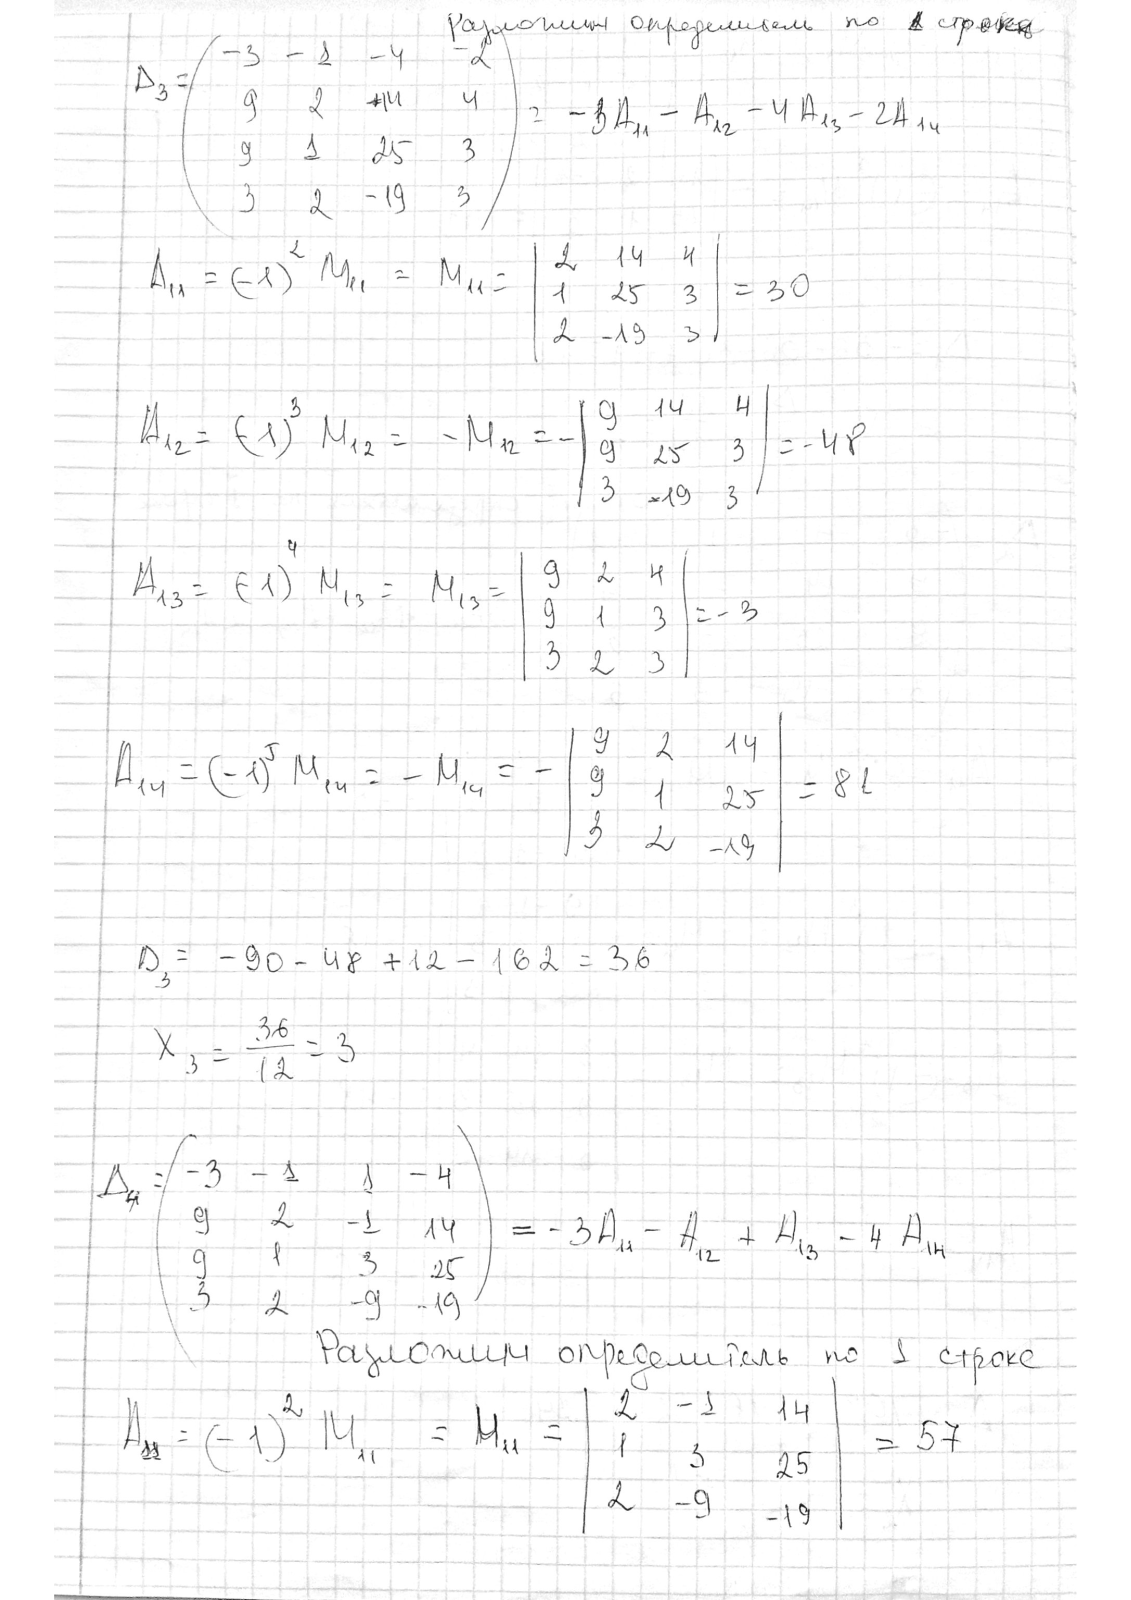 Разложим определитель по 1 строке
Δ₃ = ( -3 -1 -4 -2
9 2 14 4
9 1 25 3
3 2 -19 3 ) = -3A₁₁ - A₁₂ - 4A₁₃ - 2A₁₄
A₁₁ = (-1)² M₁₁ = M₁₁ = | 2 14 4
1 25 3
2 -19 3 | = 30
A₁₂ = (-1)³ M₁₂ = -M₁₂ = - | 9 14 4
9 25 3
3 -19 3 | = -48
A₁₃ = (-1)⁴ M₁₃ = M₁₃ = | 9 2 4
9 1 3
3 2 3 | = -3
A₁₄ = (-1)⁵ M₁₄ = -M₁₄ = - | 9 2 14
9 1 25
3 2 -19 | = 81
Δ₃ = -90 - 48 + 12 - 162 = 36
X₃ = 36/12 = 3
Δ₄ = ( -3 -1 1 -4
9 2 -1 14
9 1 3 25
3 2 -9 -19 ) = -3A₁₁ - A₁₂ + A₁₃ - 4A₁₄
Разложим определитель по 1 строке
A₁₁ = (-1)² M₁₁ = M₁₁ = | 2 -1 14
1 3 25
2 -9 -19 | = 57